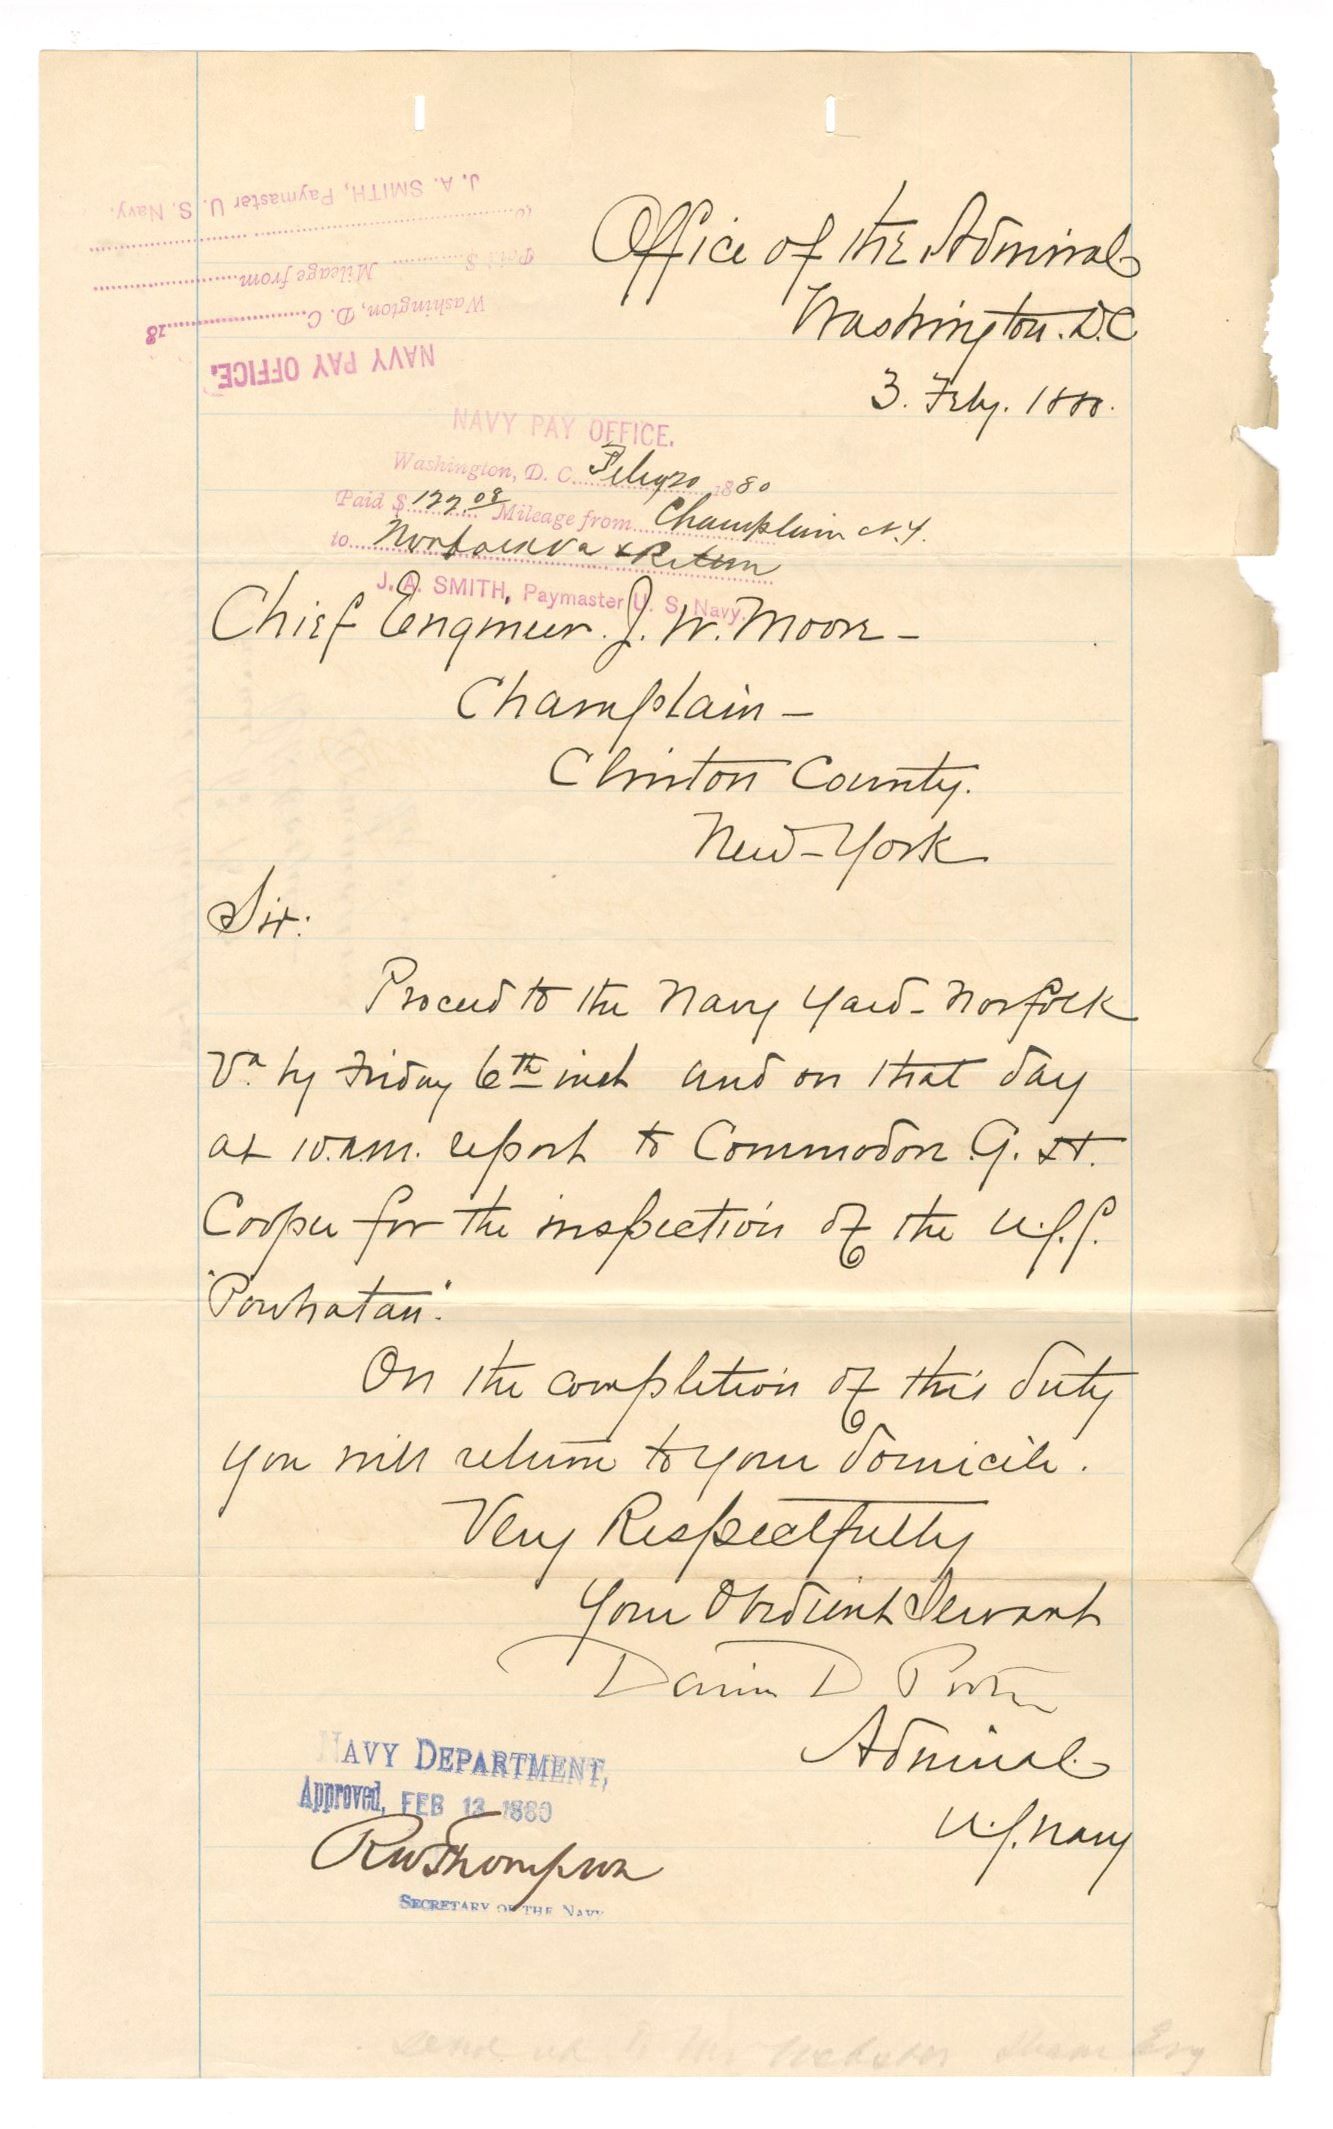 J. A. SMITH, Paymaster U. S. Navy.
to
Paid $ Mileage from
Washington, D. C. 18
NAVY PAY OFFICE.
Office of the Admiral
Washington. D.C
3. Feby. 1880.
NAVY PAY OFFICE.
Washington, D. C. Feby 20 1880
Paid $ 122.08 Mileage from Champlain N.Y.
to Norfolk Va & Return
J. A. SMITH, Paymaster U. S. Navy.
Chief Engineer. J. W. Moore -
Champlain -
Clinton County.
New-York
Sir:
Proceed to the Navy Yard - Norfolk
Va. by Friday 6th inst and on that day
at 10.a.m. report to Commodore G. H.
Cooper for the inspection of the U.S.S.
"Powhatan".
On the completion of this duty
you will return to your domicile.
Very Respectfully
Your Obedient Servant
David D Porter
Admiral
U.S. Navy
NAVY DEPARTMENT,
Approved, FEB 13 1880
RW Thompson
SECRETARY OF THE NAVY
Send to Mr Webster Esq